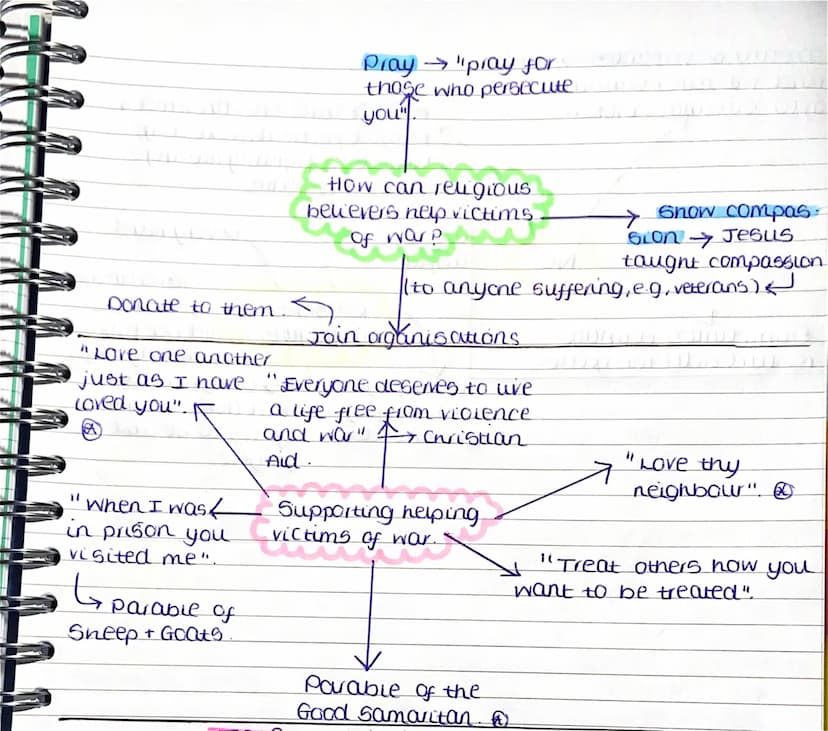 Pray → "pray for
those who persecute
you".
How can religious
believers help victims
of war?
Show compas-
sion → Jesus
taught compassion
(to anyone suffering, e.g, veterans)
Donate to them.
Join organisations
"Love one another
just as I have
loved you".
"Everyone deserves to live
a life free from violence
and war" → Christian
Aid.
"Love thy
neighbour".
"When I was
in prison you
visited me".
Supporting helping
victims of war.
"Treat others how you
want to be treated".
Parable of
Sheep + Goats.
Parable of the
Good Samaritan.